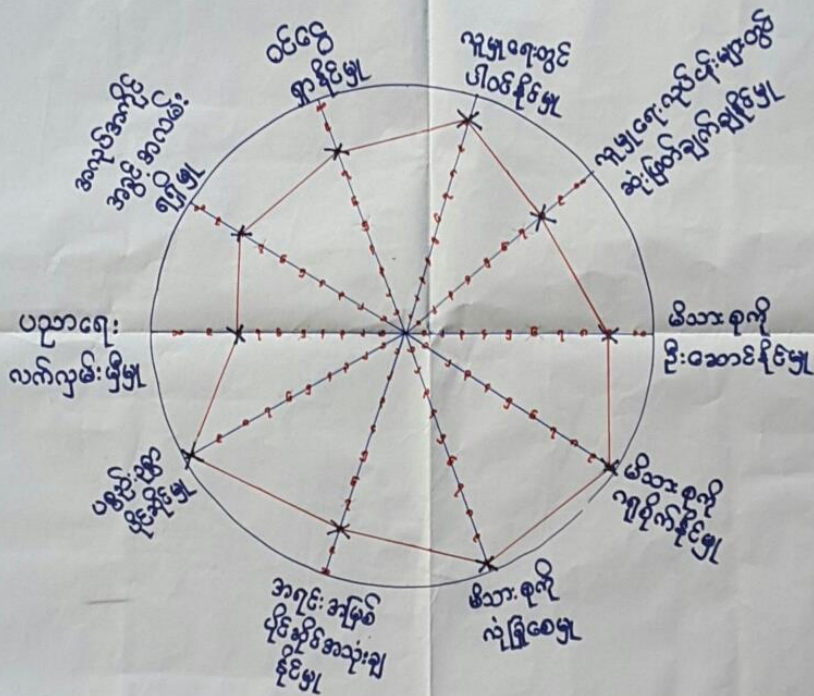 ဝင်ငွေ
ရှာနိုင်မှု
လူမှုရေးတွင်
ပါဝင်နိုင်မှု
လူမှုရေးလုပ်ငန်းများတွင်
ဆုံးဖြတ်ချက်ချနိုင်မှု
မိသားစုကို
ဦးဆောင်နိုင်မှု
မိသားစုကို
ဂရုစိုက်နိုင်မှု
မိသားစုကို
လုံခြုံစေမှု
အရင်းအမြစ်
ပိုင်ဆိုင်အသုံးချ
နိုင်မှု
ပစ္စည်းဥစ္စာ
ပိုင်ဆိုင်မှု
ပညာရေး
လက်လှမ်းမှီမှု
အလုပ်အကိုင်
အခွင့်အလမ်း
ရရှိမှု